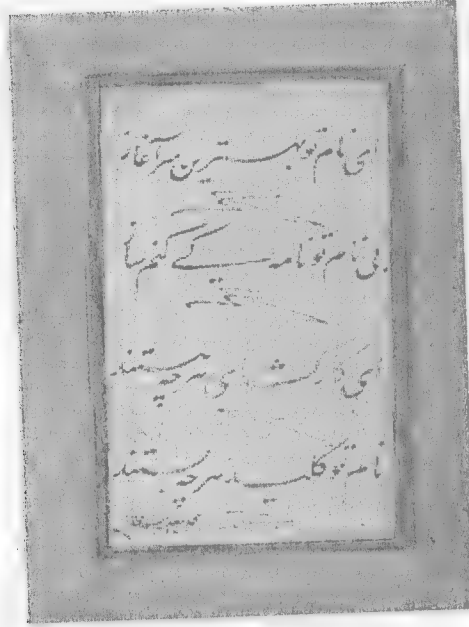 ای نام تو بهترین سرآغاز
بی نام تو نامه کی کنم باز
ای کارگشای هر چه هستند
نام تو کلید هر چه بستند